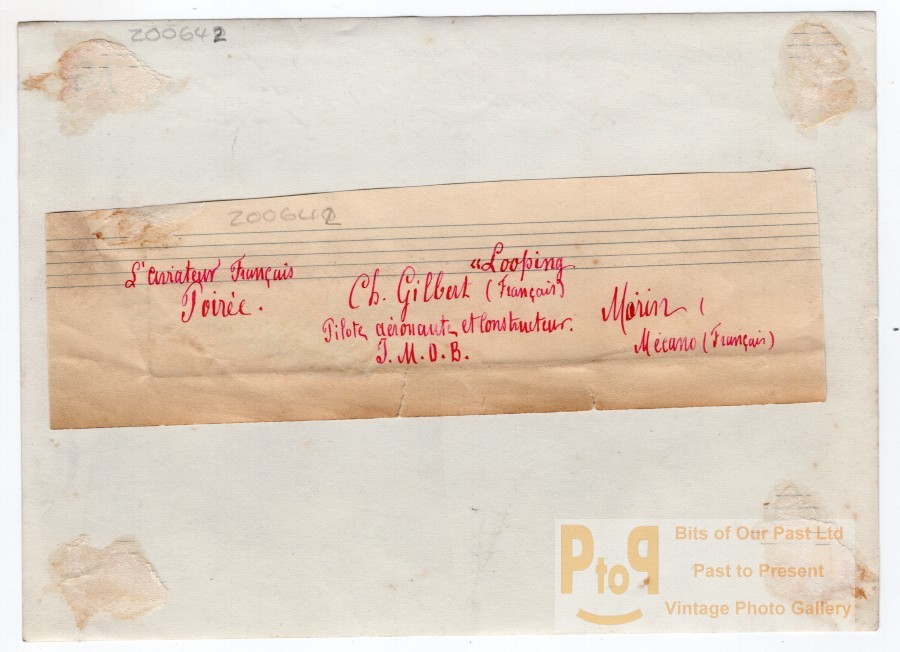 200642
200642
L'aviateur Français
Poirée.
"Looping
Ch. Gilbert (Français)
Pilote aéronaute et Constructeur.
I. M. O. B.
Morin
Mécano (Français)
PtoP
Bits of Our Past Ltd
Past to Present
Vintage Photo Gallery